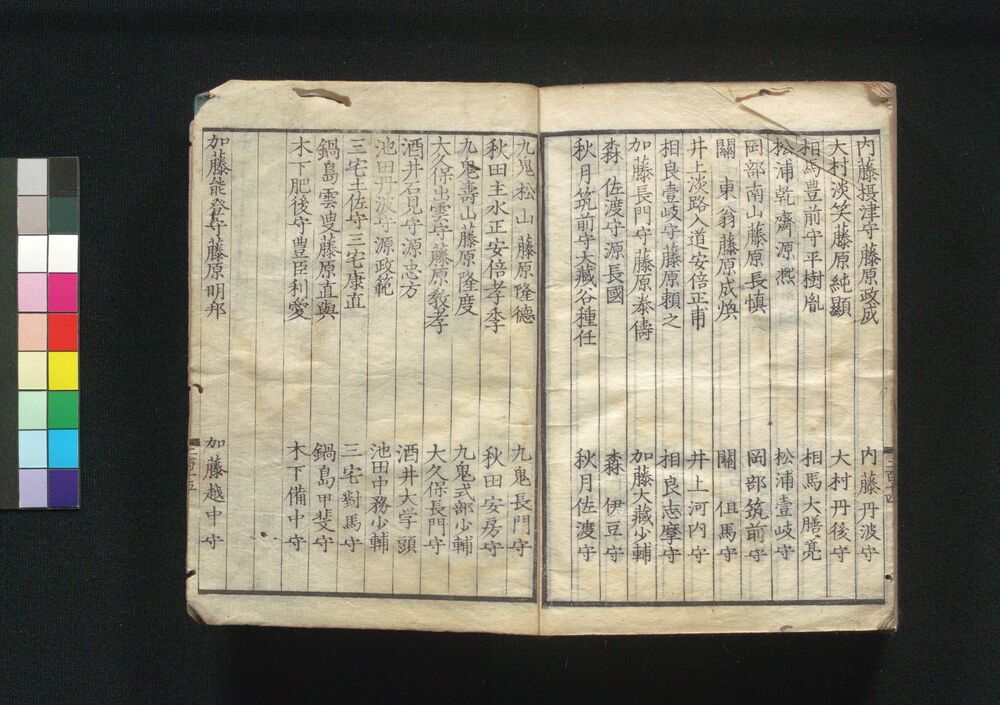 内藤摂津守藤原政成 内藤丹波守
大村淡笑藤原純顯 大村丹後守
相馬豊前守平樹胤 相馬大膳亮
松浦乾齋源熈 松浦壹岐守
岡部南山藤原長慎 岡部筑前守
關 東翁藤原成煥 關 但馬守
井上淡路入道安倍正甫 井上河内守
相良壹岐守藤原頼之 相良志摩守
加藤長門守藤原泰儔 加藤大藏少輔
森 佐渡守源長國 森 伊豆守
秋月筑前守大藏谷種任 秋月佐渡守
二百十四
九鬼松山藤原隆德 九鬼長門守
秋田主水正安倍孝季 秋田安房守
九鬼壽山藤原隆度 九鬼式部少輔
大久保出雲守藤原教孝 大久保長門守
酒井石見守源忠方 酒井大学頭
池田丹波守源政範 池田中務少輔
三宅土佐守三宅康直 三宅對馬守
鍋島雲叟藤原直與 鍋島甲斐守
木下肥後守豊臣利愛 木下備中守
加藤能登守藤原明邦 加藤越中守
二百十五